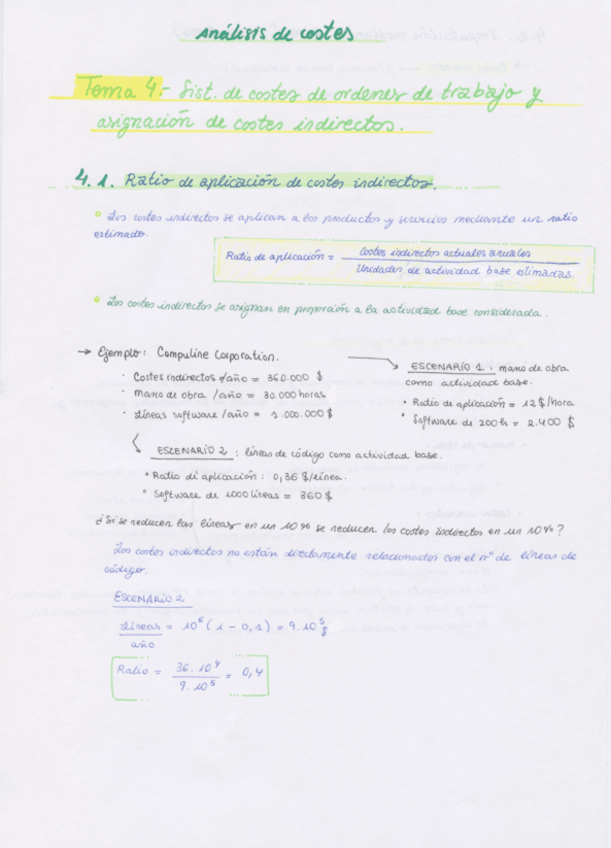 Análisis de costes
Tema 4.- Sist. de costes de ordenes de trabajo y
asignación de costes indirectos.
4.1. Ratio de aplicación de costes indirectos.
Los costes indirectos se aplican a los productos y servicios mediante un ratio
estimado.
Ratio de aplicación = Costes indirectos actuales anuales
Unidades de actividad base estimadas.
Los costes indirectos se asignan en proporción a la actividad base considerada.
→ Ejemplo: Compuline Corporation.
· Costes indirectos /año = 360.000 $
· mano de obra /año = 30.000 horas
· Líneas software /año = 1.000.000 $
ESCENARIO 1: mano de obra
como actividad base.
• Ratio de aplicación = 12 $/hora
• Software de 200 h = 2.400 $
ESCENARIO 2: líneas de código como actividad base.
• Ratio de aplicación: 0,36 $/línea.
• Software de 1000 líneas = 360 $
¿Si se reducen las líneas en un 10% se reducen los costes indirectos en un 10%?
Los costes indirectos no están directamente relacionados con el nº de líneas de
código.
ESCENARIO 2
Líneas = 10⁶ (1 - 0,1) = 9.10⁵ $
año
Ratio = 36.10⁴ = 0,4
9.10⁵